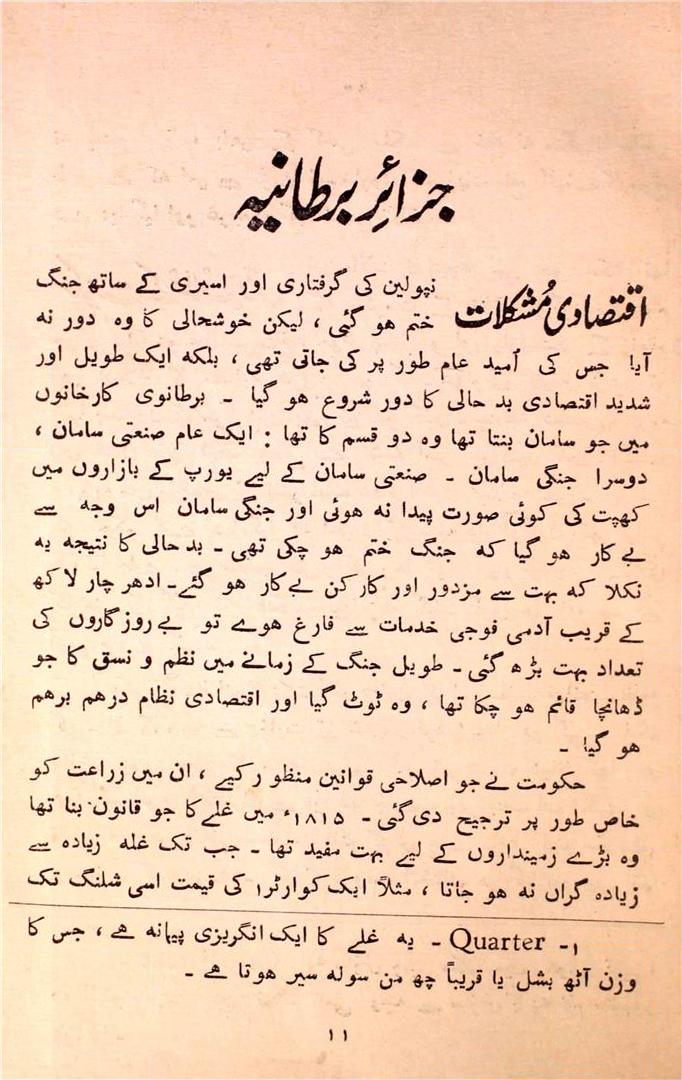 جزائرِ برطانیہ
اقتصادی مُشکلات
نپولین کی گرفتاری اور اسیری کے ساتھ جنگ
ختم ہو گئی ، لیکن خوشحالی کا وہ دور نہ
آیا جس کی اُمید عام طور پر کی جاتی تھی ، بلکہ ایک طویل اور
شدید اقتصادی بد حالی کا دور شروع ہو گیا ۔ برطانوی کارخانوں
میں جو سامان بنتا تھا وہ دو قسم کا تھا : ایک عام صنعتی سامان ،
دوسرا جنگی سامان ۔ صنعتی سامان کے لیے یورپ کے بازاروں میں
کھپت کی کوئی صورت پیدا نہ ہوئی اور جنگی سامان اس وجہ سے
بے کار ہو گیا کہ جنگ ختم ہو چکی تھی ۔ بد حالی کا نتیجہ یہ
نکلا کہ بہت سے مزدور اور کارکن بے کار ہو گئے ۔ ادھر چار لاکھ
کے قریب آدمی فوجی خدمات سے فارغ ہوے تو بے روزگاروں کی
تعداد بہت بڑھ گئی ۔ طویل جنگ کے زمانے میں نظم و نسق کا جو
ڈھانچا قائم ہو چکا تھا ، وہ ٹوٹ گیا اور اقتصادی نظام درہم برہم
ہو گیا ۔
حکومت نے جو اصلاحی قوانین منظور کیے ، ان میں زراعت کو
خاص طور پر ترجیح دی گئی ۔ ۱۸۱۵ء میں غلے کا جو قانون بنا تھا
وہ بڑے زمینداروں کے لیے بہت مفید تھا ۔ جب تک غلہ زیادہ سے
زیادہ گراں نہ ہو جاتا ، مثلاً ایک کوارٹر۱ کی قیمت اسی شلنگ تک
۱- Quarter ۔ یہ غلے کا ایک انگریزی پیمانہ ہے ، جس کا
وزن آٹھ بشل یا قریباً چھ من سولہ سیر ہوتا ہے ۔
۱۱